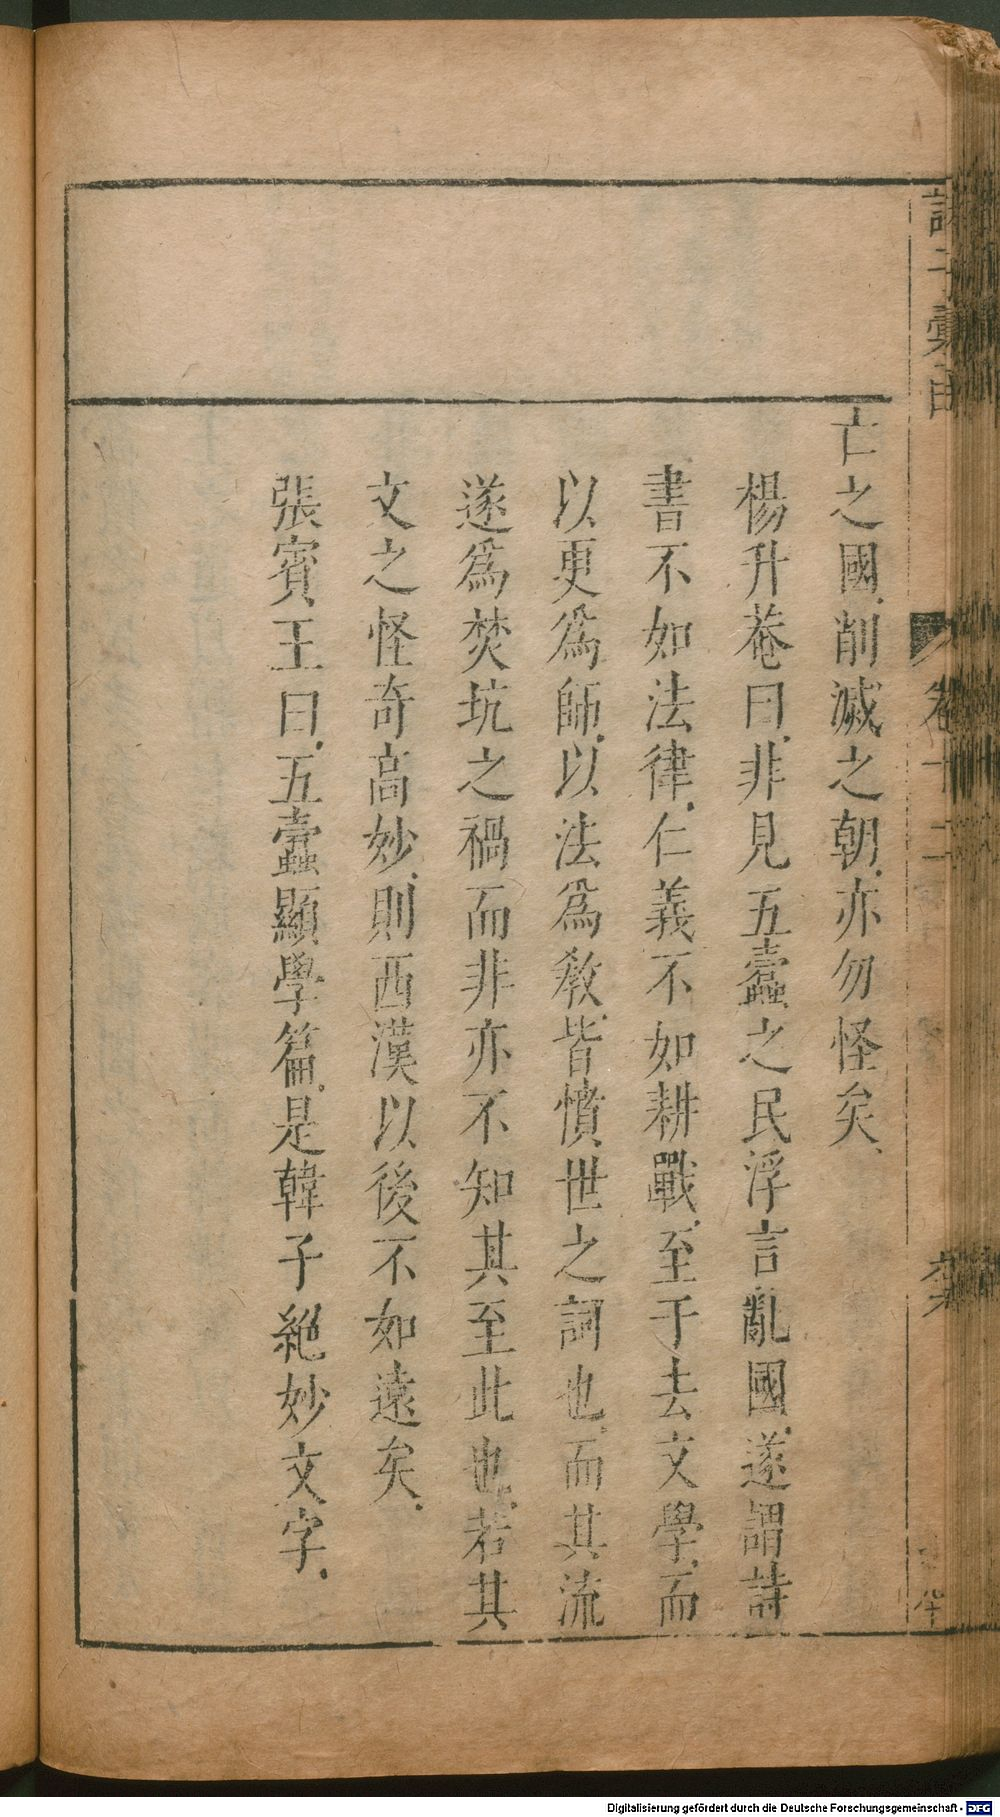 諸子彙函
卷十二
亡之國削滅之朝亦勿怪矣、
楊升菴曰、非見五蠹之民浮言亂國、遂謂詩
書不如法律、仁義不如耕戰、至于去文學、而
以更爲師、以法爲教、皆憤世之詞也、而其流
遂爲焚坑之禍而非亦不知其至此也、若其
文之怪奇高妙、則西漢以後不如遠矣、
張賓王曰、五蠹顯學篇、是韓子絕妙文字、
Digitalisierung gefördert durch die Deutsche Forschungsgemeinschaft - DFG